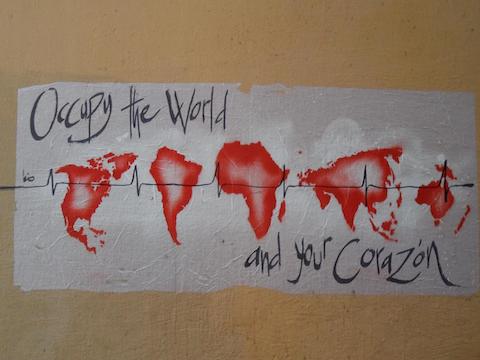 Occupy the World
and your Corazón